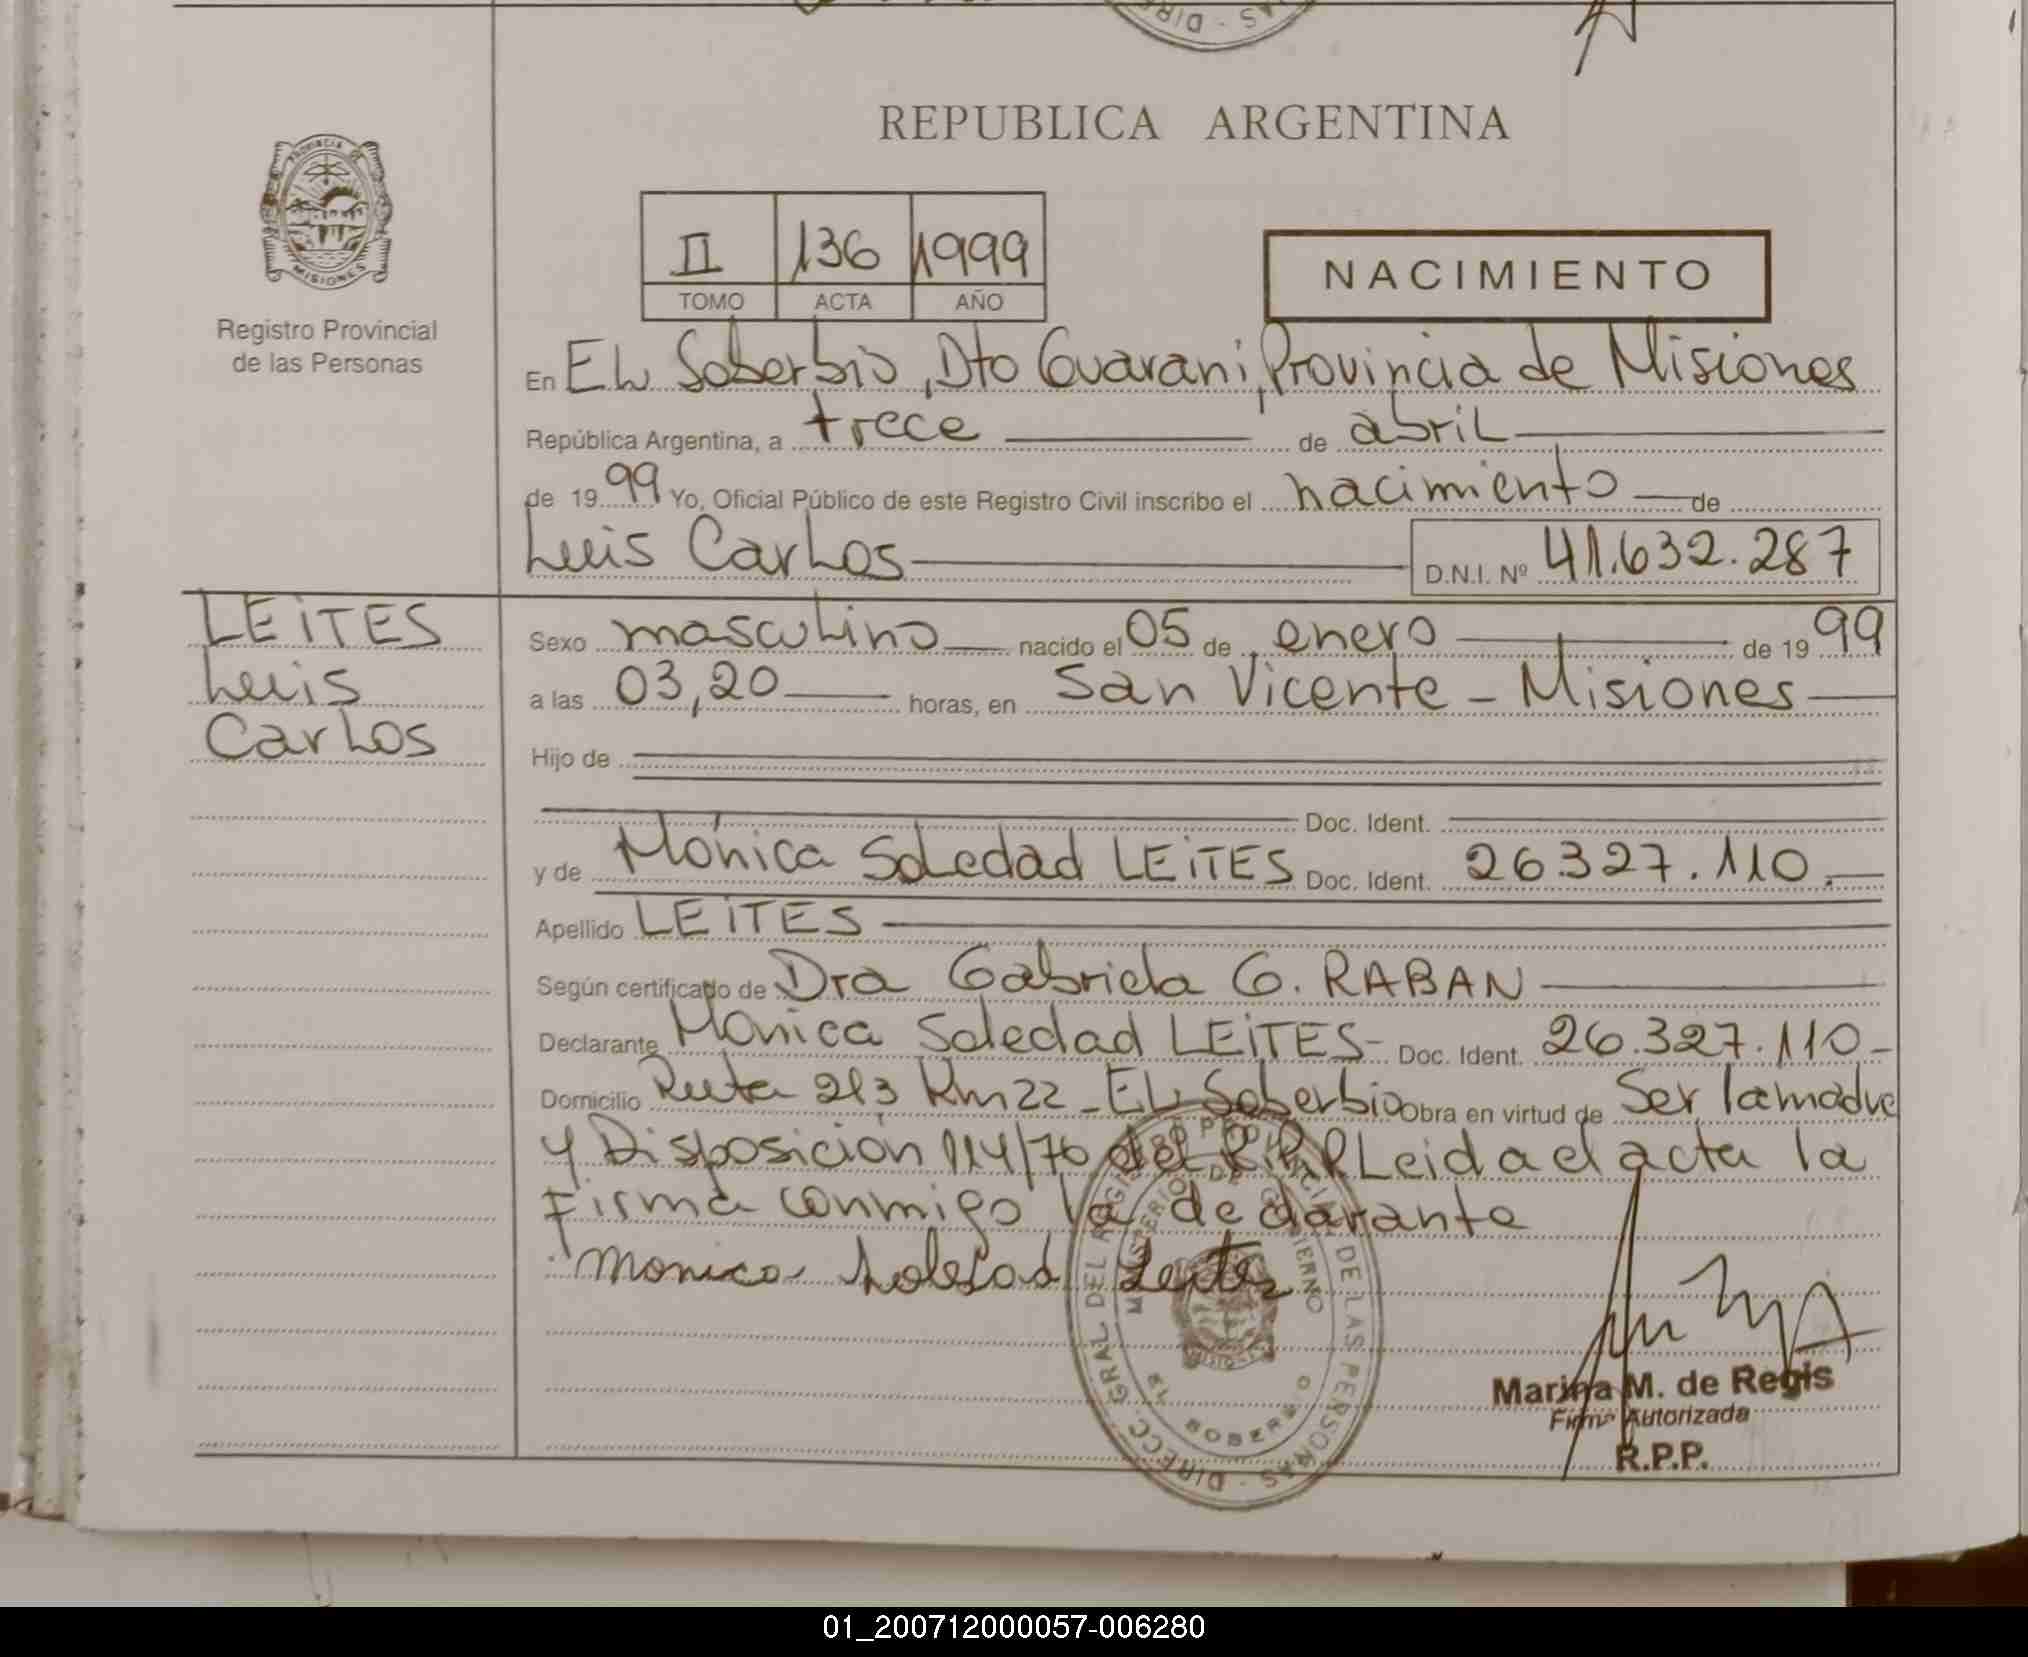 REPUBLICA ARGENTINA
PROVINCIA DE
MISIONES
Registro Provincial
de las Personas
II 136 1999
TOMO ACTA AÑO
NACIMIENTO
En EL Soberbio, Dto Guarani, Provincia de Misiones
República Argentina, a trece de abril
de 1999 Yo, Oficial Público de este Registro Civil inscribo el nacimiento de
Luis Carlos D.N.I. Nº 41.632.287
LEiTES
Luis
Carlos
Sexo masculino nacido el 05 de enero de 1999
a las 03,20 horas, en San Vicente - Misiones
Hijo de
Doc. Ident.
y de Mónica Soledad LEiTES Doc. Ident. 26.327.110.
Apellido LEiTES
Según certificado de Dra Gabriela G. RABAN
Declarante Mónica Soledad LEiTES- Doc. Ident. 26.327.110-
Domicilio Ruta 213 Km 22 - EL Soberbio Obra en virtud de Ser la madre
y Disposición 114/76 del R.P.P Leida el acta la
Firma conmigo la declarante
Monica Soledad Leites
DIRECC. GRAL. DEL REGISTRO PROVINCIAL DE LAS PERSONAS
MINISTERIO DE GOBIERNO
MISIONES
EL SOBERBIO
Marina M. de Regis
Firma Autorizada
R.P.P.
01_200712000057-006280